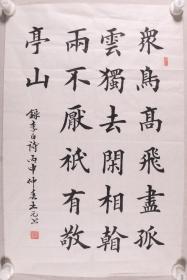 衆鳥高飛盡孤
雲獨去閑相
兩不厭祇有敬
亭山
錄李白詩丙申仲春